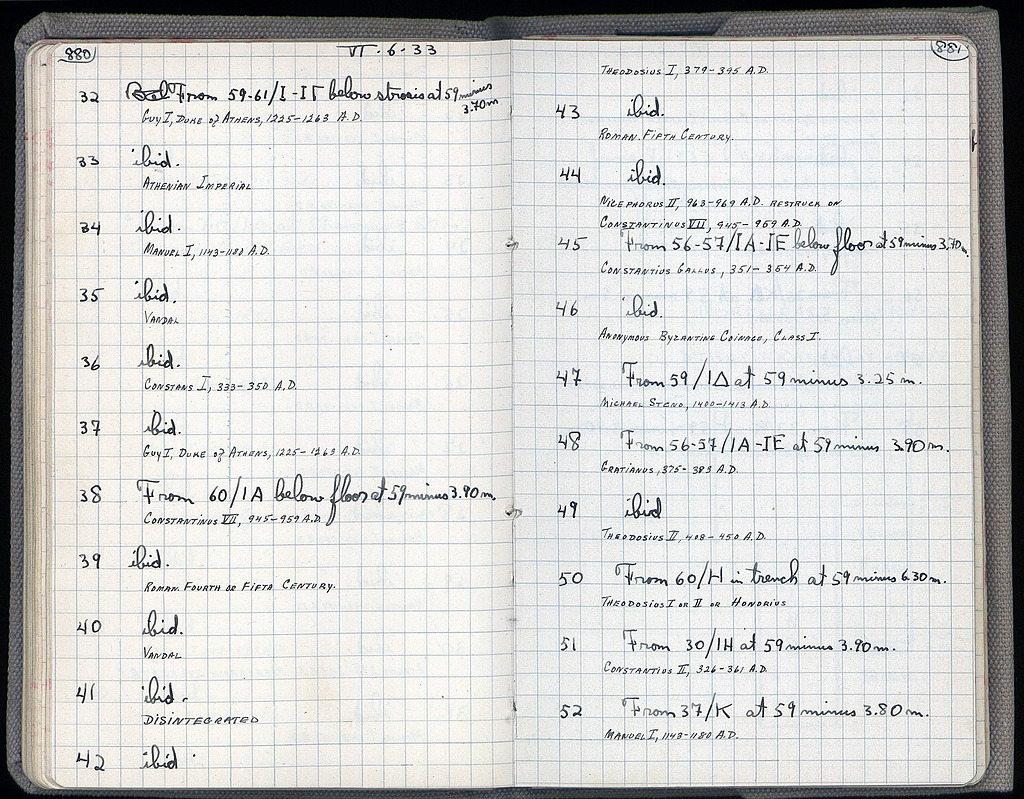 880
VI-6-33
32 From 59-61/I-IΓ below strosis at 59 minus 3.70m
Guy I, Duke of Athens, 1225-1263 A.D.
33 ibid.
Athenian Imperial
34 ibid.
Manuel I, 1143-1180 A.D.
35 ibid.
Vandal
36 ibid.
Constans I, 333-350 A.D.
37 ibid.
Guy I, Duke of Athens, 1225-1263 A.D.
38 From 60/IA below floor at 59 minus 3.90 m.
Constantinus VII, 945-959 A.D.
39 ibid.
Roman. Fourth or Fifth Century.
40 ibid.
Vandal
41 ibid.
Disintegrated
42 ibid
881
Theodosius I, 379-395 A.D.
43 ibid.
Roman. Fifth Century.
44 ibid.
Nicephorus II, 963-969 A.D. restruck on
Constantinus VII, 945-959 A.D.
45 From 56-57/IA-IE below floor at 59 minus 3.70 m.
Constantius Gallus, 351-354 A.D.
46 ibid.
Anonymous Byzantine Coinage, Class I.
47 From 59/IΔ at 59 minus 3.25 m.
Michael Steno, 1400-1413 A.D.
48 From 56-57/IA-IE at 59 minus 3.90 m.
Gratianus, 375-383 A.D.
49 ibid
Theodosius II, 408-450 A.D.
50 From 60/H in trench at 59 minus 6.30 m.
Theodosius I or II or Honorius
51 From 30/IH at 59 minus 3.90 m.
Constantius II, 326-361 A.D.
52 From 37/K at 59 minus 3.80 m.
Manuel I, 1143-1180 A.D.